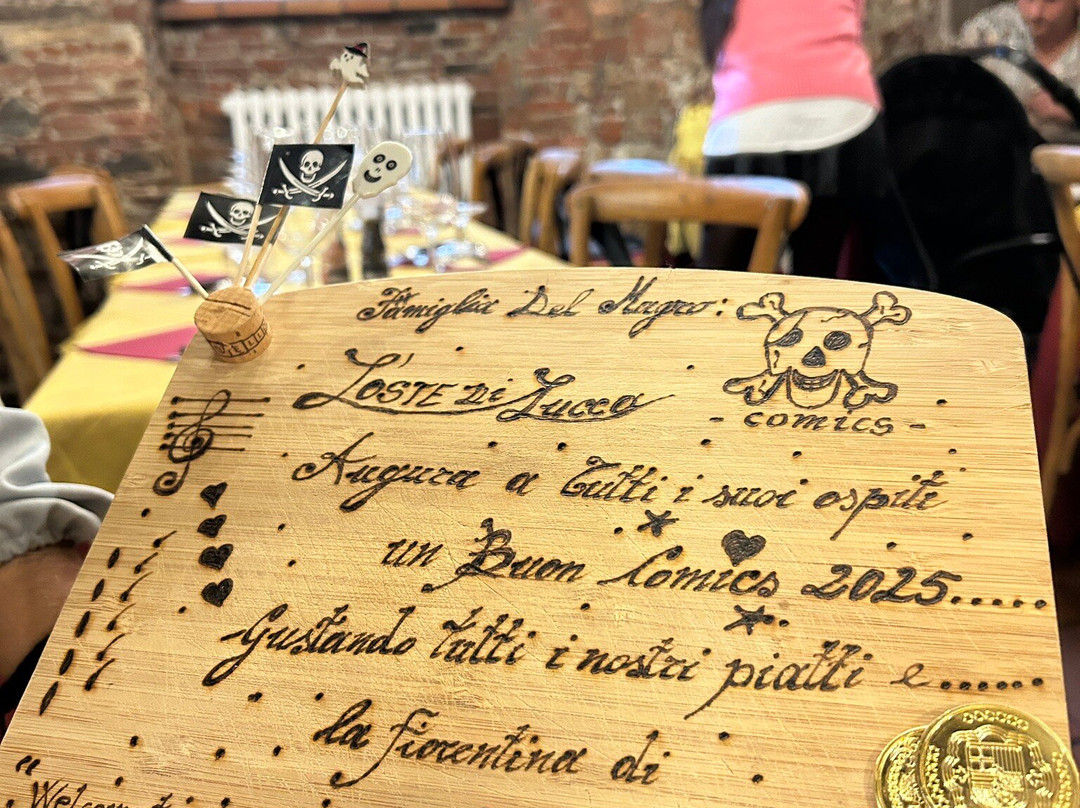 Famiglia Del Magro:
L'OSTE Di Lucca
- comics -
Augura a Tutti i suoi ospiti
un Buon Comics 2025.....
Gustando tutti i nostri piatti e......
la fiorentina di
"Welcom